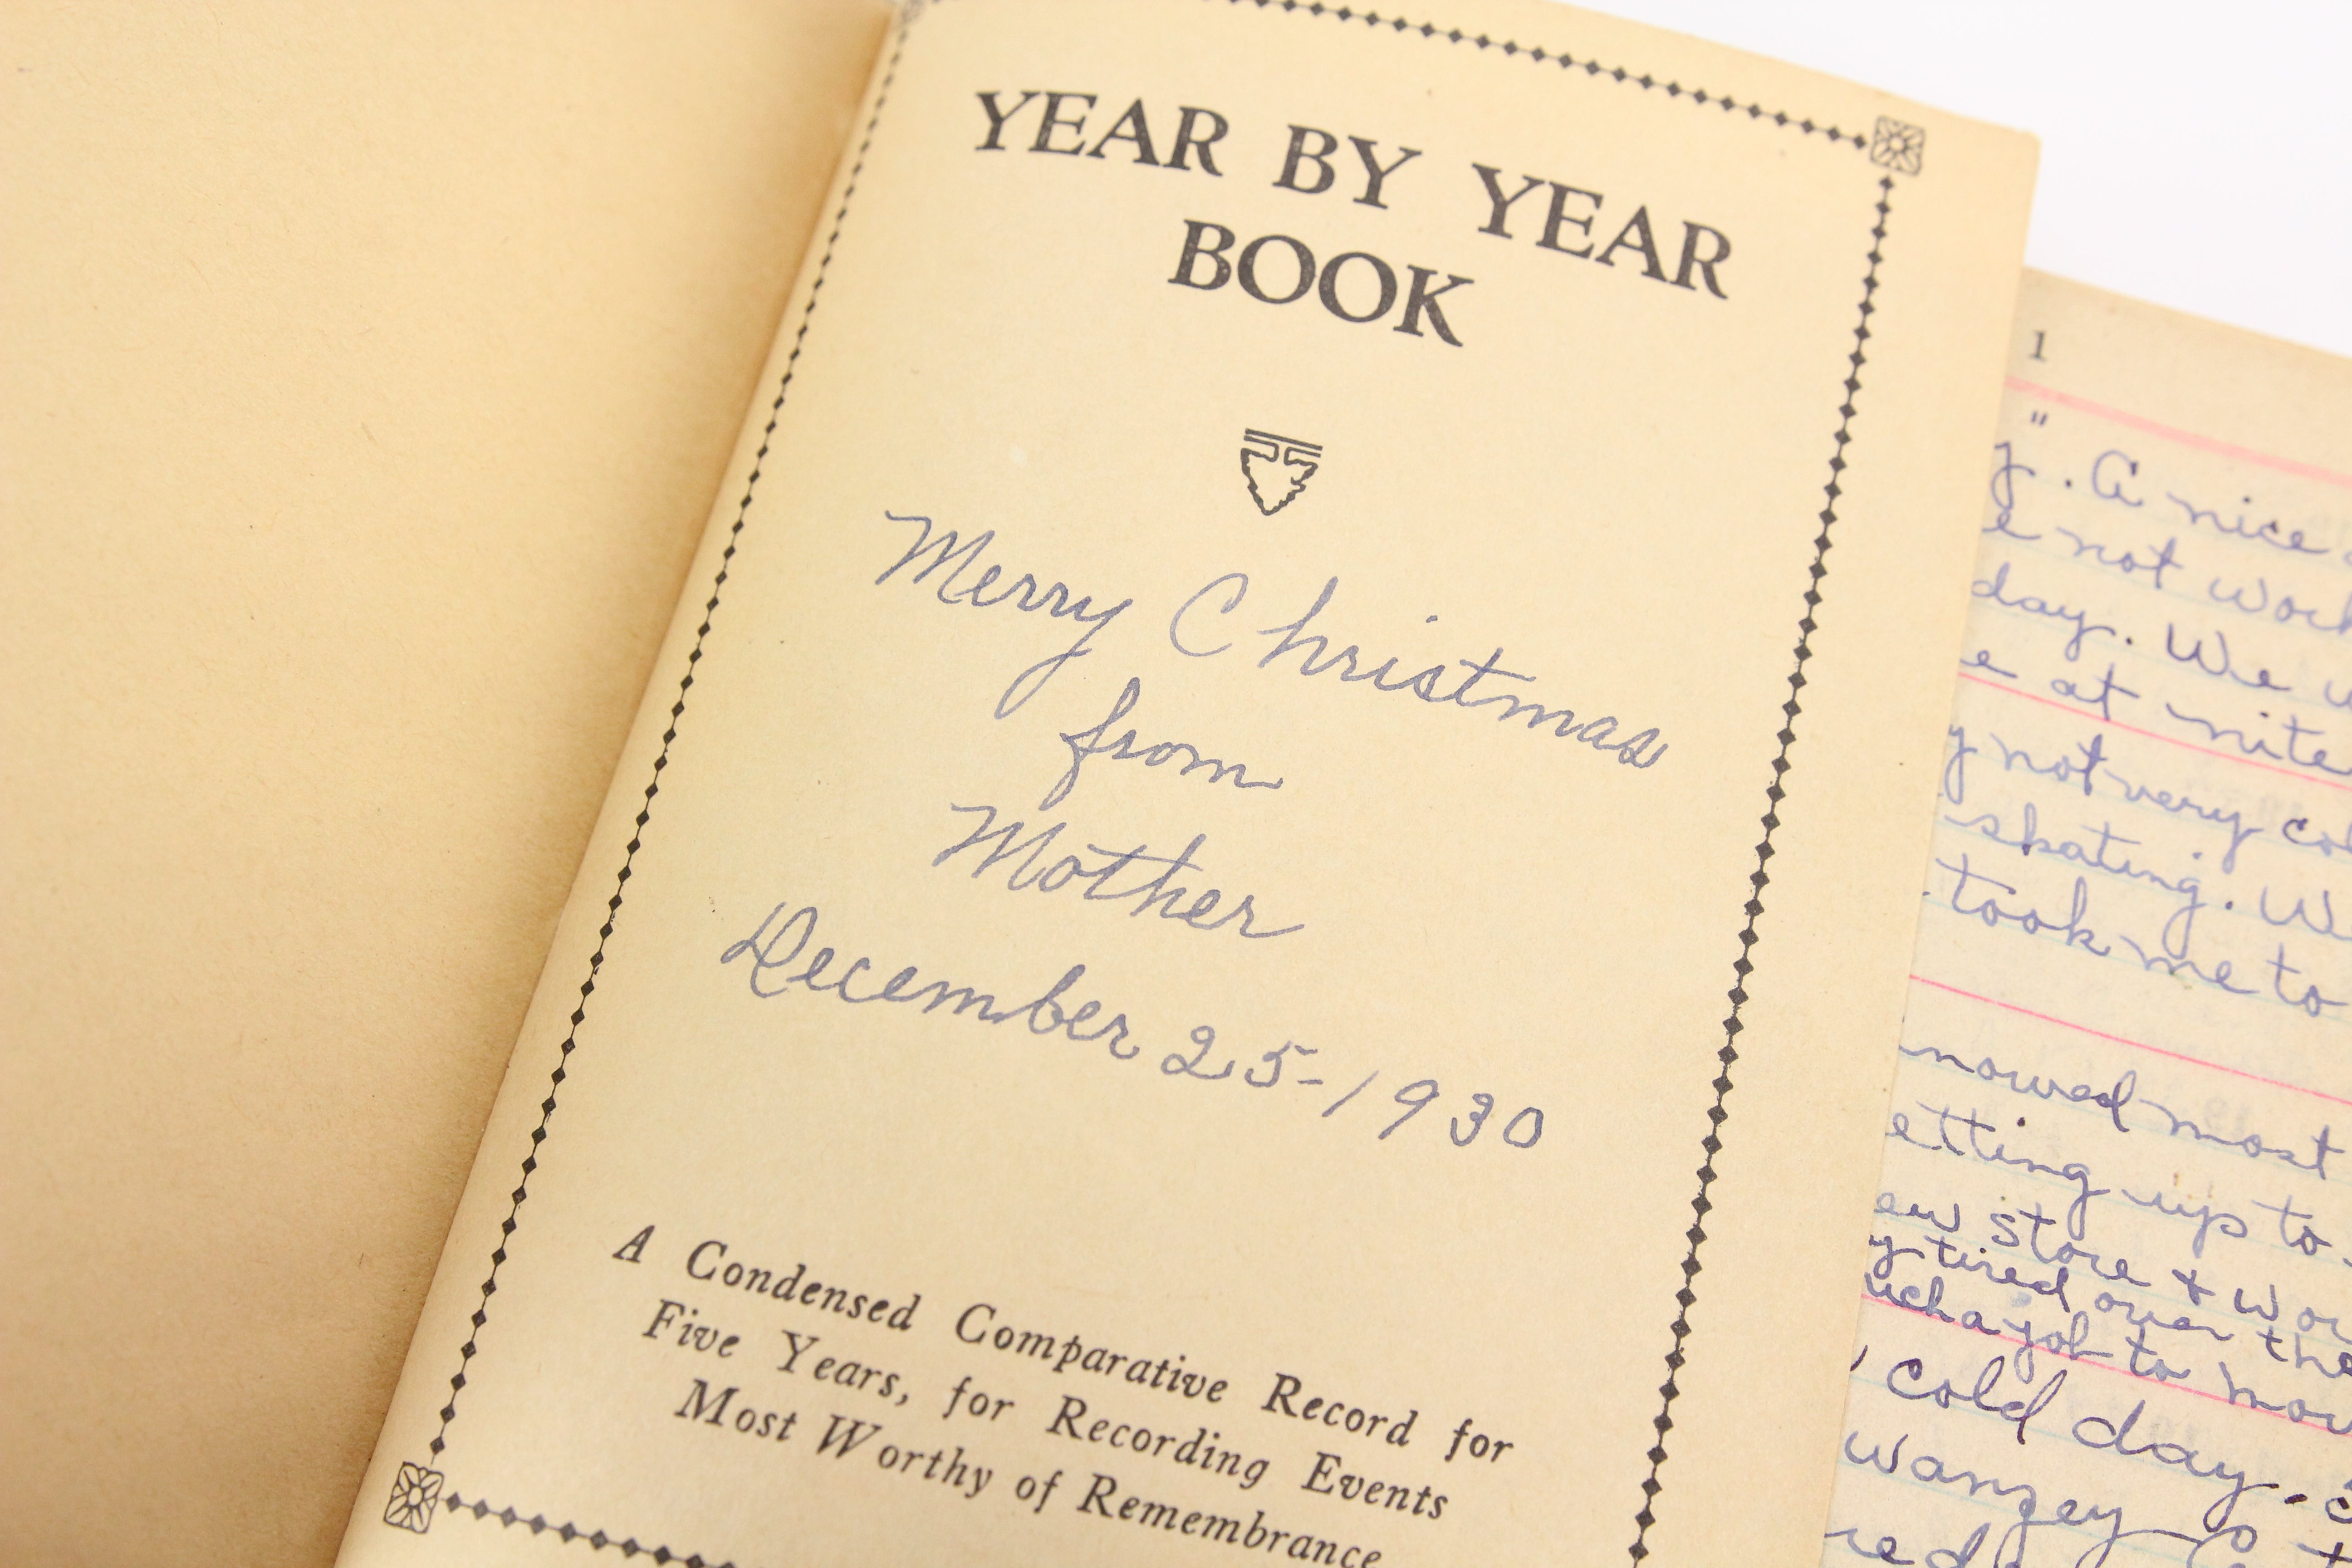 YEAR BY YEAR
BOOK
Merry Christmas
from
Mother
December 25-1930
A Condensed Comparative Record for
Five Years, for Recording Events
Most Worthy of Remembrance
1
". A nice
not
day. We
at nite
not very
skating.
took me to
most
up to
store +
tired over
a job to
cold day.